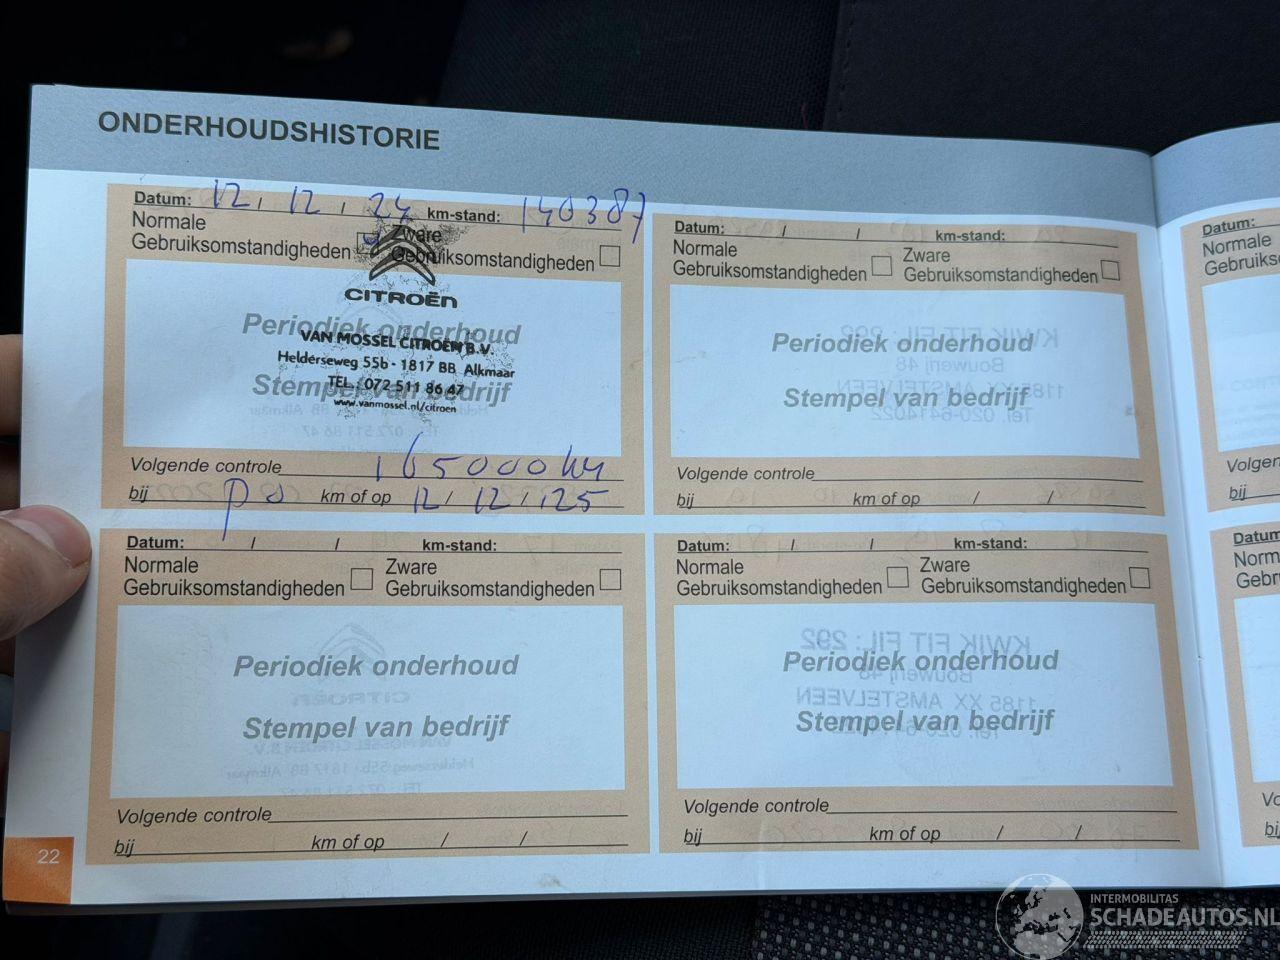 ONDERHOUDSHISTORIE
Datum: 12 / 12 / 24 km-stand: 140387
Normale Gebruiksomstandigheden
Zware Gebruiksomstandigheden
CITROËN
Periodiek onderhoud
VAN MOSSEL CITROËN B.V.
Helderseweg 55b - 1817 BB Alkmaar
TEL.: 072 511 86 47
Stempel van bedrijf
www.vanmossel.nl/citroen
Volgende controle 165000 km
bij km of op 12 / 12 / 25
Datum: / / km-stand:
Normale Gebruiksomstandigheden
Zware Gebruiksomstandigheden
Periodiek onderhoud
Stempel van bedrijf
Volgende controle
bij km of op / /
Datum: / / km-stand:
Normale Gebruiksomstandigheden
Zware Gebruiksomstandigheden
Periodiek onderhoud
Stempel van bedrijf
Volgende controle
bij km of op / /
Datum: / / km-stand:
Normale Gebruiksomstandigheden
Zware Gebruiksomstandigheden
Periodiek onderhoud
Stempel van bedrijf
Volgende controle
bij km of op / /
Datum:
Normale
bij
22
INTERMOBILITAS
SCHADEAUTOS.NL